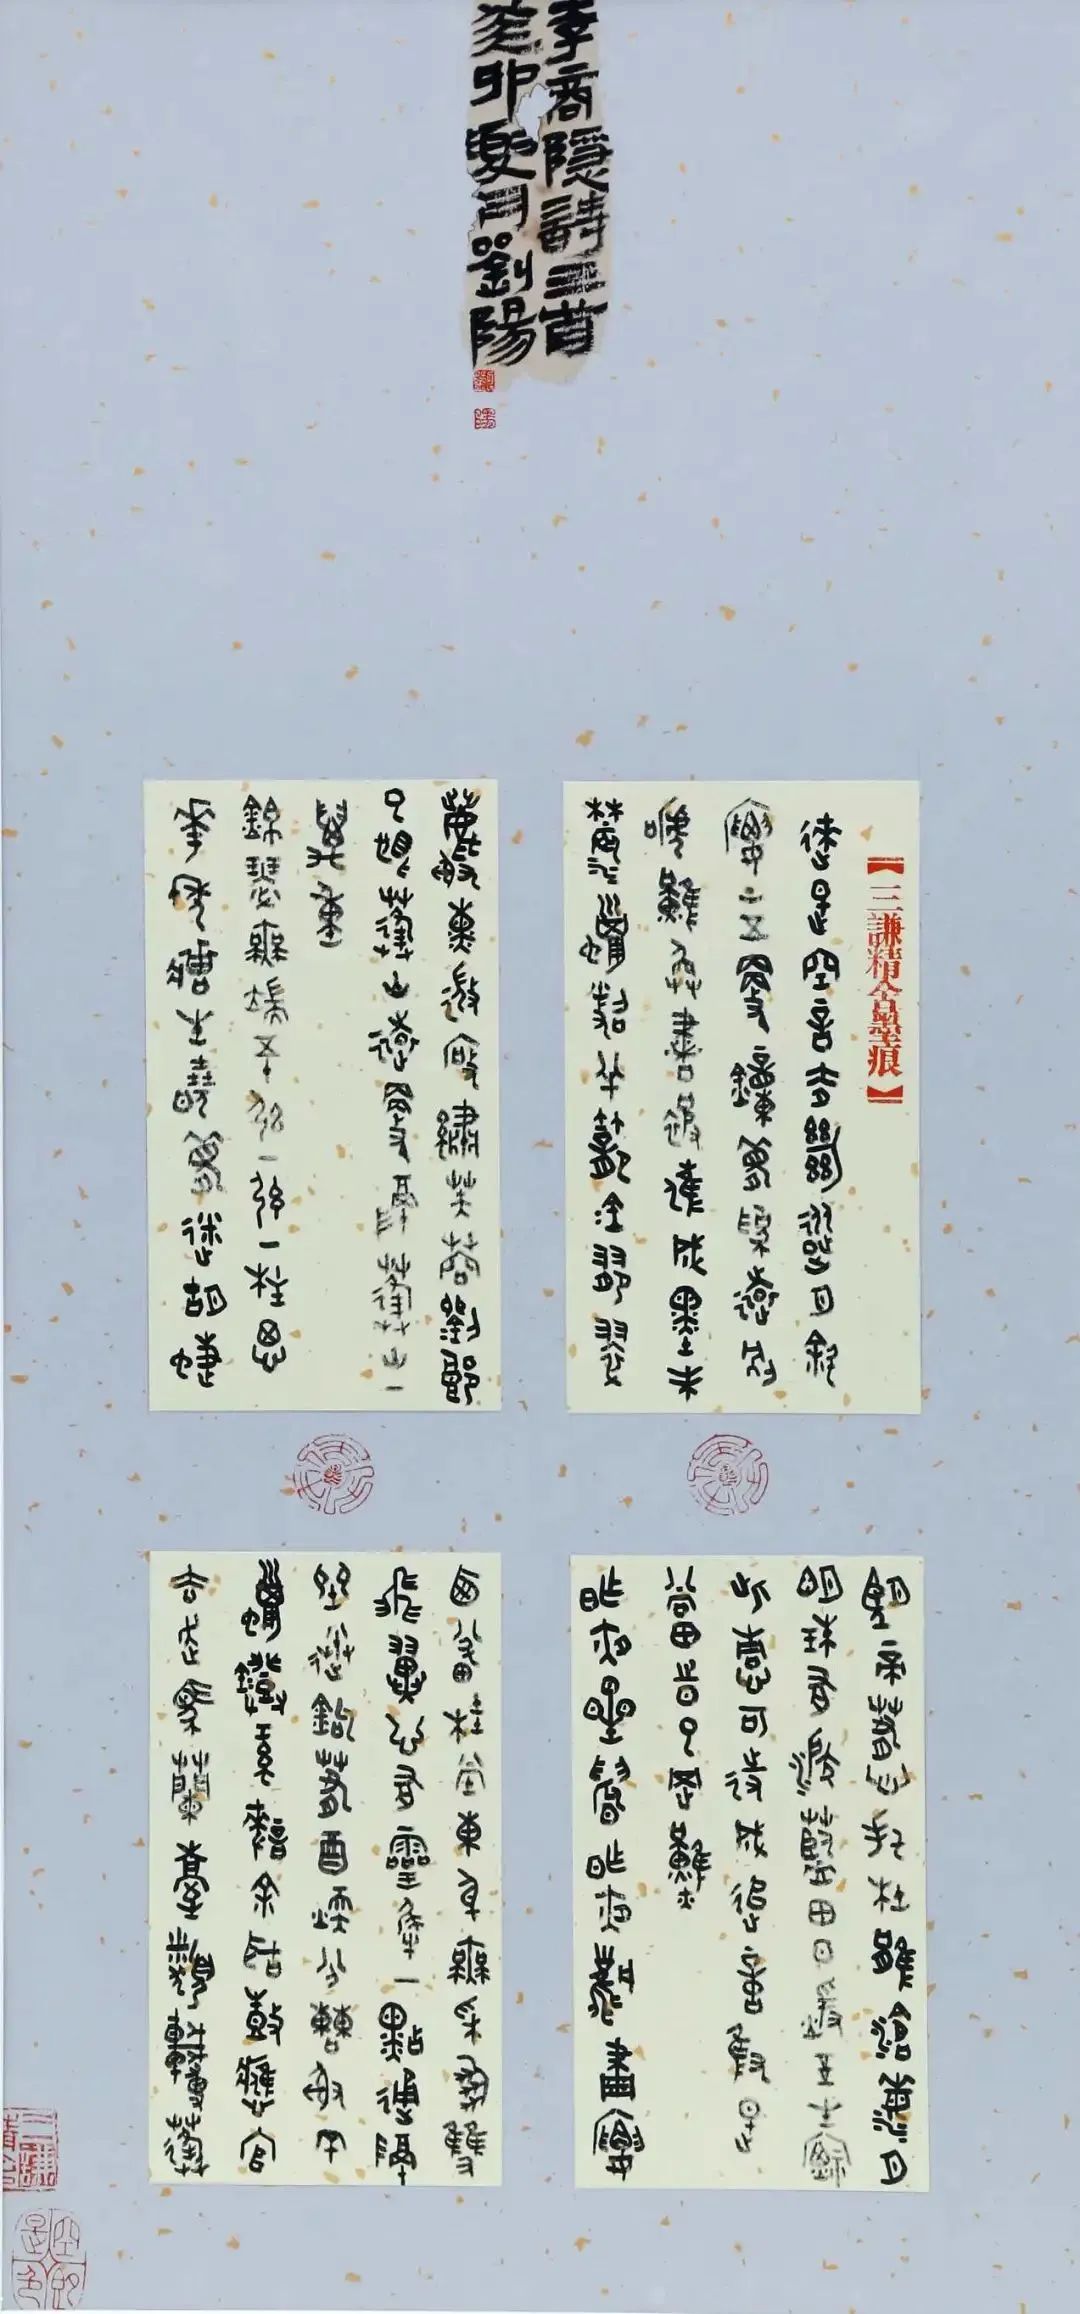 李商隱詩三首
癸卯夏月劉陽
【三謙精舍墨痕】
來是空言去絕蹤月斜
樓上五更鐘夢為遠別
啼難喚書被催成墨未
濃蠟照半籠金翡翠
麝熏微度繡芙蓉劉郎
已恨蓬山遠更隔蓬山一
萬重
錦瑟無端五十弦一弦一柱思
華年莊生曉夢迷胡蝶
望帝春心託杜鵑滄海月
明珠有淚藍田日暖玉生煙
此情可待成追憶只是
當時已惘然
昨夜星辰昨夜風畫樓
西畔桂堂東身無彩鳳雙
飛翼心有靈犀一點通隔
座送鉤春酒暖分曹射覆
蠟燈紅嗟余聽鼓應官
去走馬蘭臺類轉蓬